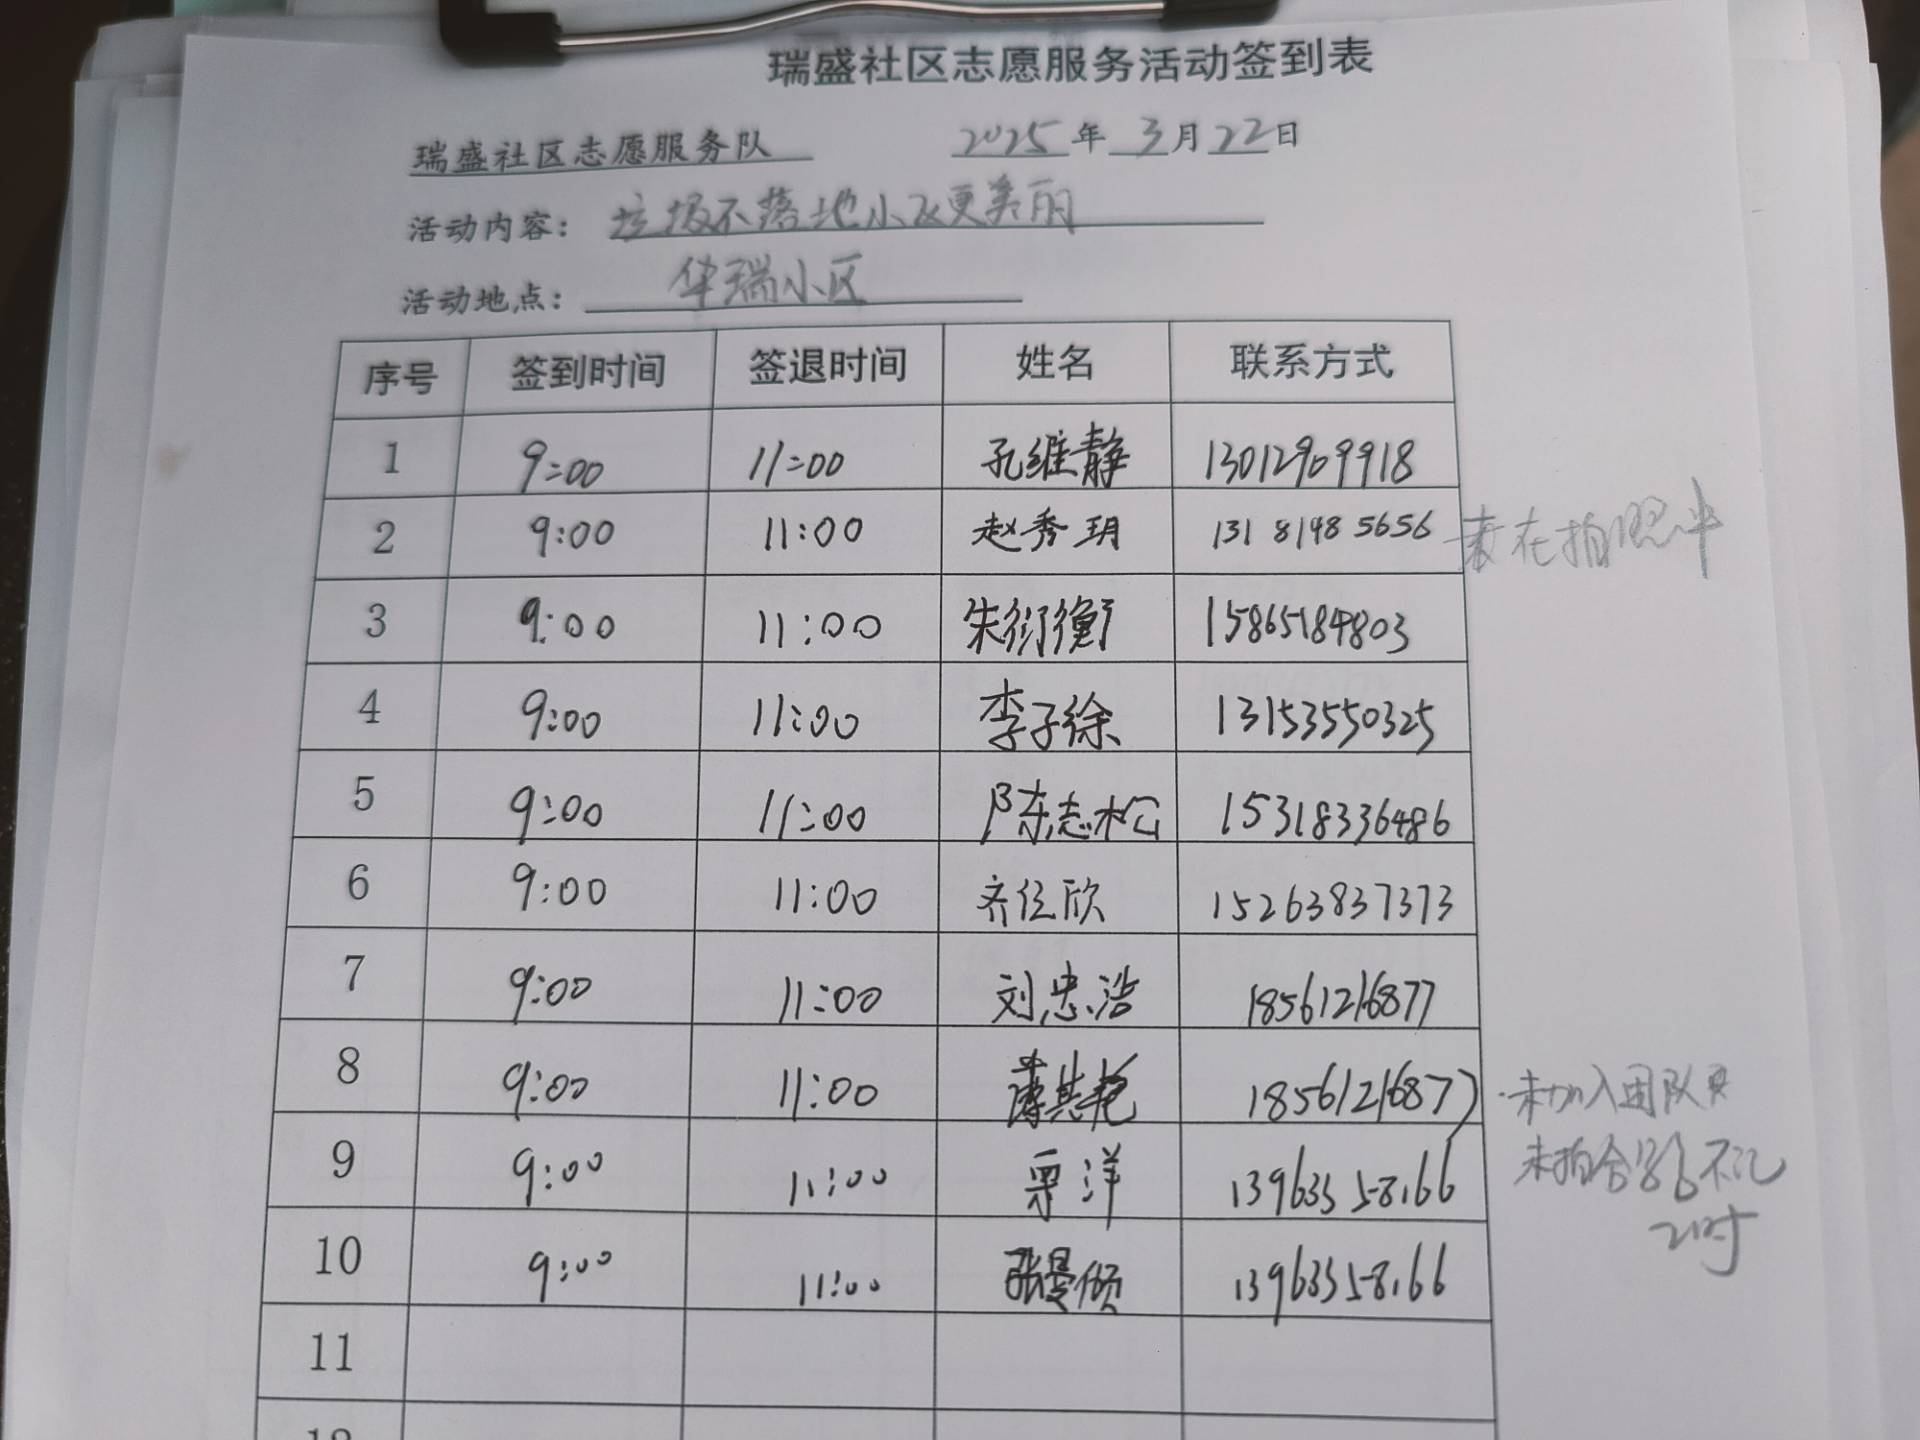 瑞盛社区志愿服务活动签到表
瑞盛社区志愿服务队 2025年3月22日
活动内容：垃圾不落地小区更美丽
活动地点：华瑞小区
序号 签到时间 签退时间 姓名 联系方式
1 9:00 11:00 孔维静 13012909918
2 9:00 11:00 赵秀玥 131 8148 5656 未在拍照中
3 9:00 11:00 朱衍衡 15865184803
4 9:00 11:00 李子徐 13153550325
5 9:00 11:00 陈志松 15318336486
6 9:00 11:00 齐任欣 15263837373
7 9:00 11:00 刘忠浩 18561216877
8 9:00 11:00 薄其艳 18561216877 未加入团队员
9 9:00 11:00 覃洋 13963358166 未拍合影不记
时
10 9:00 11:00 张曼倾 13963358166
11